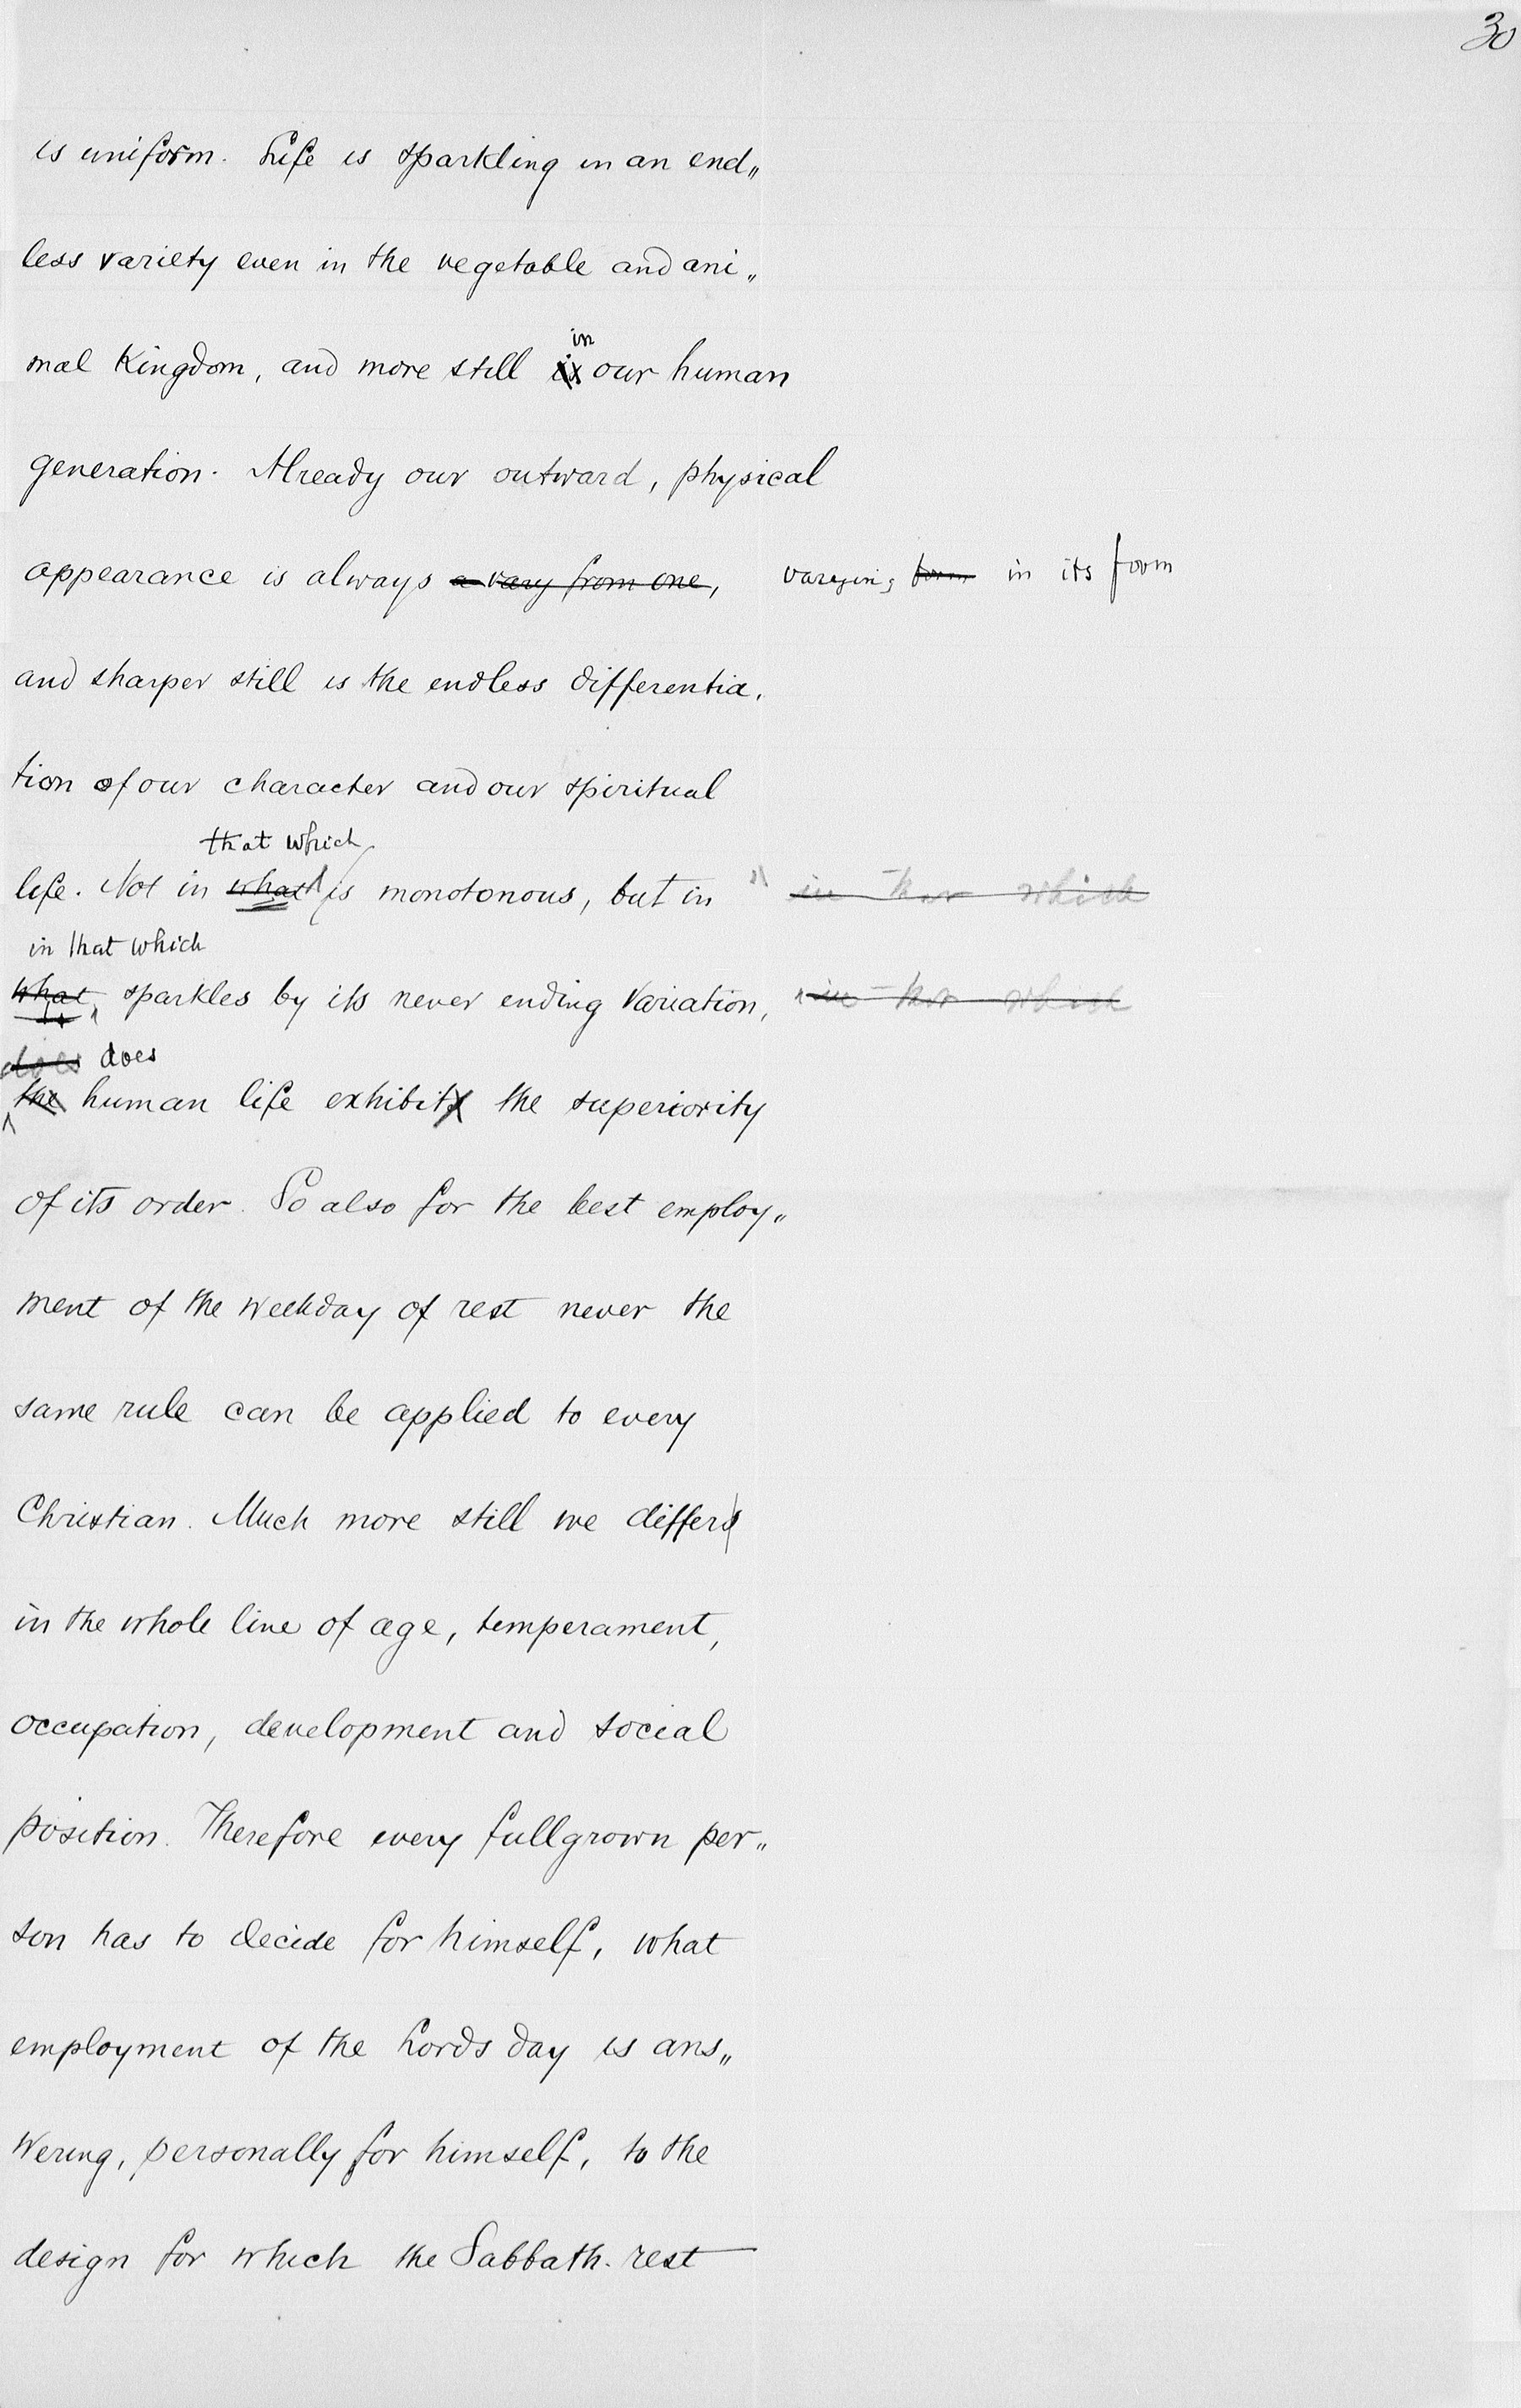 30
is uniform. Life is sparkling in an end„
less variety even in the vegetable and ani„
in
mal Kingdom, and more still is our human
generation. Already our outward, physical
appearance is always a vary from one, varying form in its form
and sharper still is the endless differentia.
tion of our character and our spiritual
that which
life. Not in what is monotonous, but in in that which
in that which
what sparkles by its never ending variation, in that which
does does
the human life exhibits the superiority
of its order. So also for the best employ„
ment of the weekday of rest never the
same rule can be applied to every
Christian. Much more still we differs
in the whole line of age, temperament,
occupation, development and social
position. Therefore every fullgrown per„
son has to decide for himself, what
employment of the Lords day is ans„
wering, personally for himself, to the
design for which the Sabbath. rest